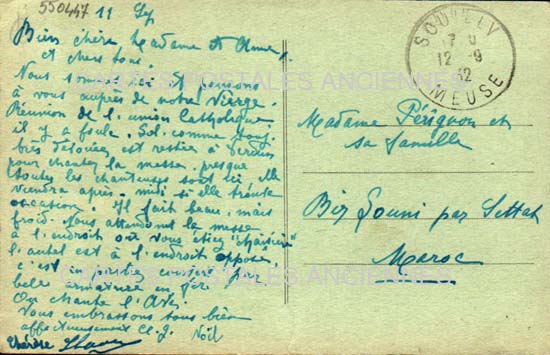 550447
11 Sep
Bien chère Madame et Anna,
et chers tous,
Nous sommes ici et pensons
à vous auprès de notre Vierge.
Réunion de l'union Catholique
il y a foule. Sol. comme
est restée à Verdun
pour chanter la messe, presque
toutes les chanteuses sont ici. Elle
viendra après-midi si elle trouve
occasion. Il fait beau, mais
froid. Nous attendons la messe
à l'endroit où vous étiez
l'autel est à l'endroit opposé,
c'est un
belle
On chante l'Ave.
Vous embrassons tous bien
affectueusement
Noël
Thérèse
SOUILLY
7 0
12 -9
32
MEUSE
Madame Pérignon et
sa famille
Bir Jouni par Settat
Maroc
CARTES POSTALES ANCIENNES
CARTES POSTALES ANCIENNES